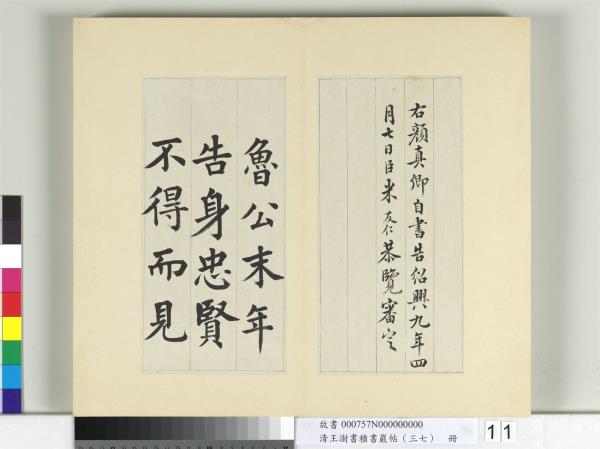 右顏真卿自書告紹興九年四
月七日臣米友仁恭覽審定
魯公末年
告身忠賢
不得而見
故書 000757N000000000
清王澍書積書巖帖（三七） 冊
11